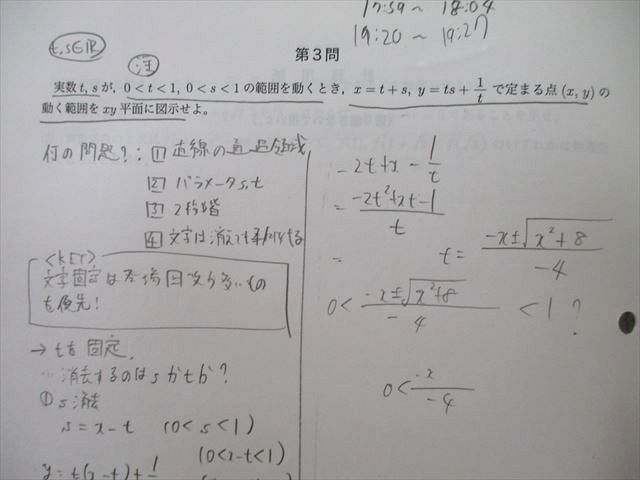 17:59~ 18:04
19:20~ 19:27
t,s∈R
注
第3問
実数t, sが, 0<t<1, 0<s<1の範囲を動くとき, x=t+s, y=ts+1/tで定まる点(x, y)の
動く範囲をxy平面に図示せよ。
何の問題?: 1 直線の通過領域
2 パラメータs,t
3 2段階
4 文字は消えても
<KEY>
文字固定は 登場回数多いもの
を優先!
→ tを固定,
…消去するのはsかtか?
① s消去
s=x-t (0<s<1)
(0<x-t<1)
y=t(x-t)+1/t
-2t+x-1/t
= (-2t²+xt-1)/t
= t= (-x±√(x²+8))/-4
0< (-x±√(x²+8))/-4 <1?
0< -x/-4